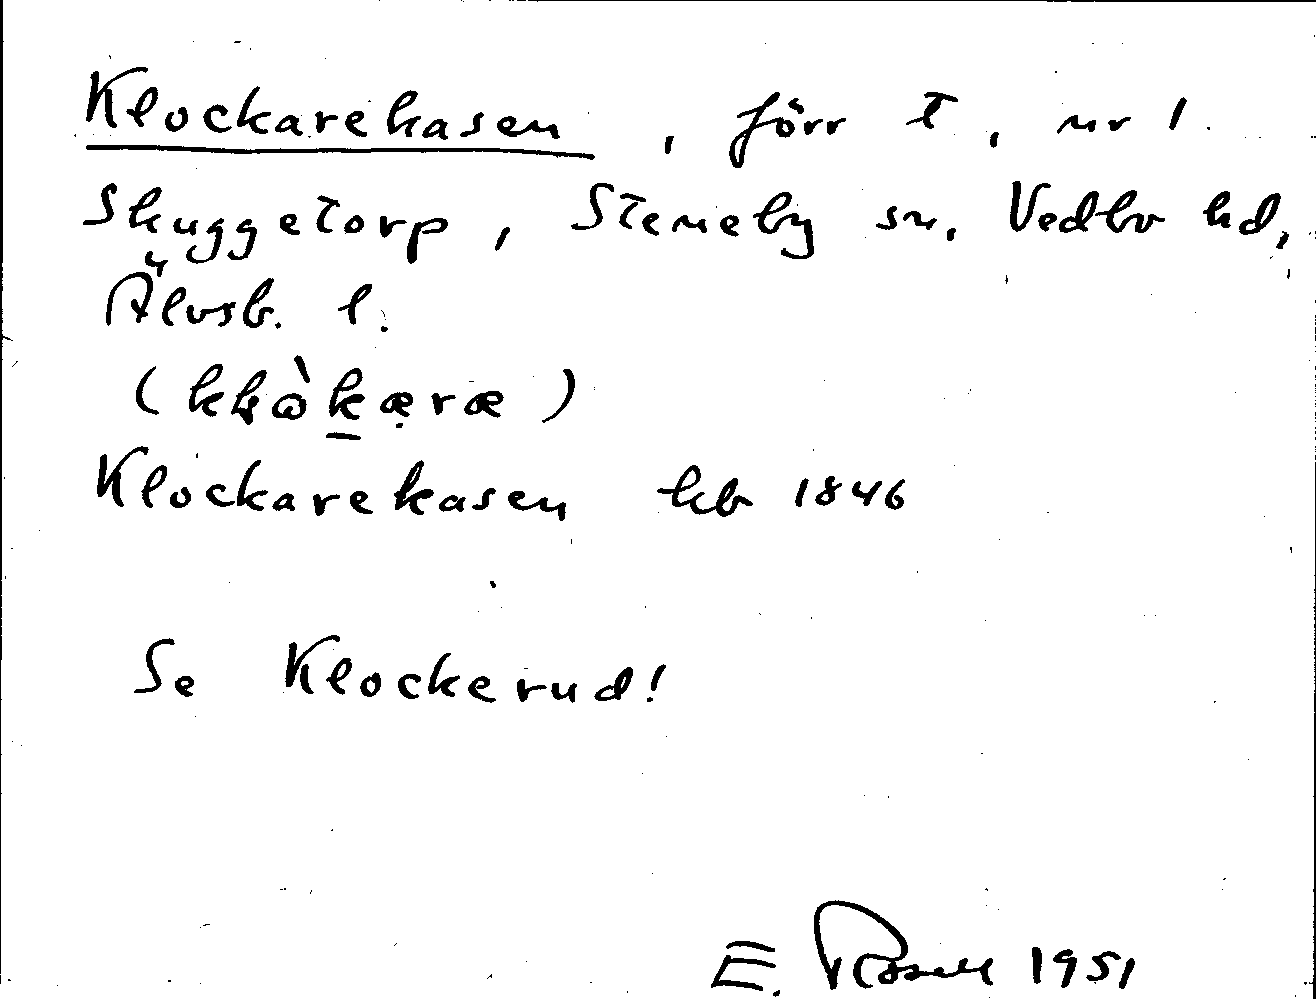 Klockarekasen, förr t, nr 1
Skuggetorp, Steneby sn, Vedbo hd,
Älvsb. l.
Klockarekasen hb 1846
Se Klockerud!
E. Rosell 1951